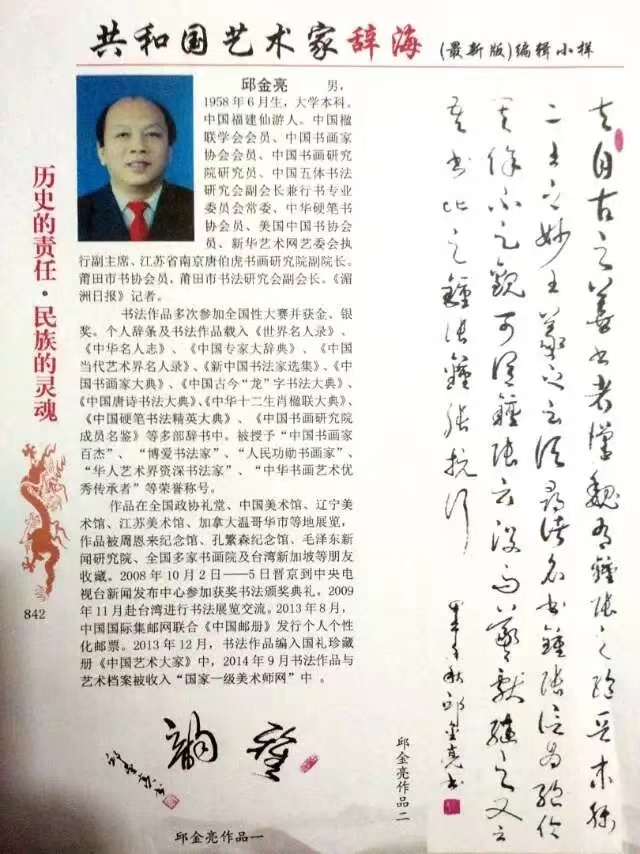 共和国艺术家辞海(最新版)编辑小样
历史的责任·民族的灵魂
842
邱金亮 男,
1958年6月生,大学本科。
中国福建仙游人。中国楹
联学会会员、中国书画家
协会会员、中国书画研究
院研究员、中国五体书法
研究会副会长兼行书专业
委员会常委、中华硬笔书
协会员、美国中国书协会
员、新华艺术网艺委会执
行副主席、江苏省南京唐伯虎书画研究院副院长。
莆田市书协会员,莆田市书法研究会副会长。《湄
洲日报》记者。
书法作品多次参加全国性大赛并获金、银
奖。个人辞条及书法作品载入《世界名人录》、
《中华名人志》、《中国专家大辞典》、《中国
当代艺术界名人录》、《新中国书法家选集》、《中
国书画家大典》、《中国古今“龙”字书法大典》、
《中国唐诗书法大典》、《中华十二生肖楹联大典》、
《中国硬笔书法精英大典》、《中国书画研究院
成员名鉴》等多部辞书中。被授予“中国书画家
百杰”、“博爱书法家”、“人民功勋书画家”、
“华人艺术界资深书法家”、“中华书画艺术优
秀传承者”等荣誉称号。
作品在全国政协礼堂、中国美术馆、辽宁美
术馆、江苏美术馆、加拿大温哥华市等地展览,
作品被周恩来纪念馆、孔繁森纪念馆、毛泽东新
闻研究院、全国多家书画院及台湾新加坡等朋友
收藏。2008年10月2日——5日晋京到中央电
视台新闻发布中心参加获奖书法颁奖典礼。2009
年11月赴台湾进行书法展览交流。2013年8月,
中国国际集邮网联合《中国邮册》发行个人个性
化邮票。2013年12月,书法作品编入国礼珍藏
册《中国艺术大家》中,2014年9月书法作品与
艺术档案被收入“国家一级美术师网”中。
夫自古之善书者漢魏有鍾張之絕晋末稱
二王之妙王羲之云頃尋諸名書鍾張信為絕倫
其餘不足觀可謂鍾張云没而羲獻繼之又云
吾書比之鍾張鍾抗行
秋邱金亮书
韵
邱金亮作品一
邱金亮作品二